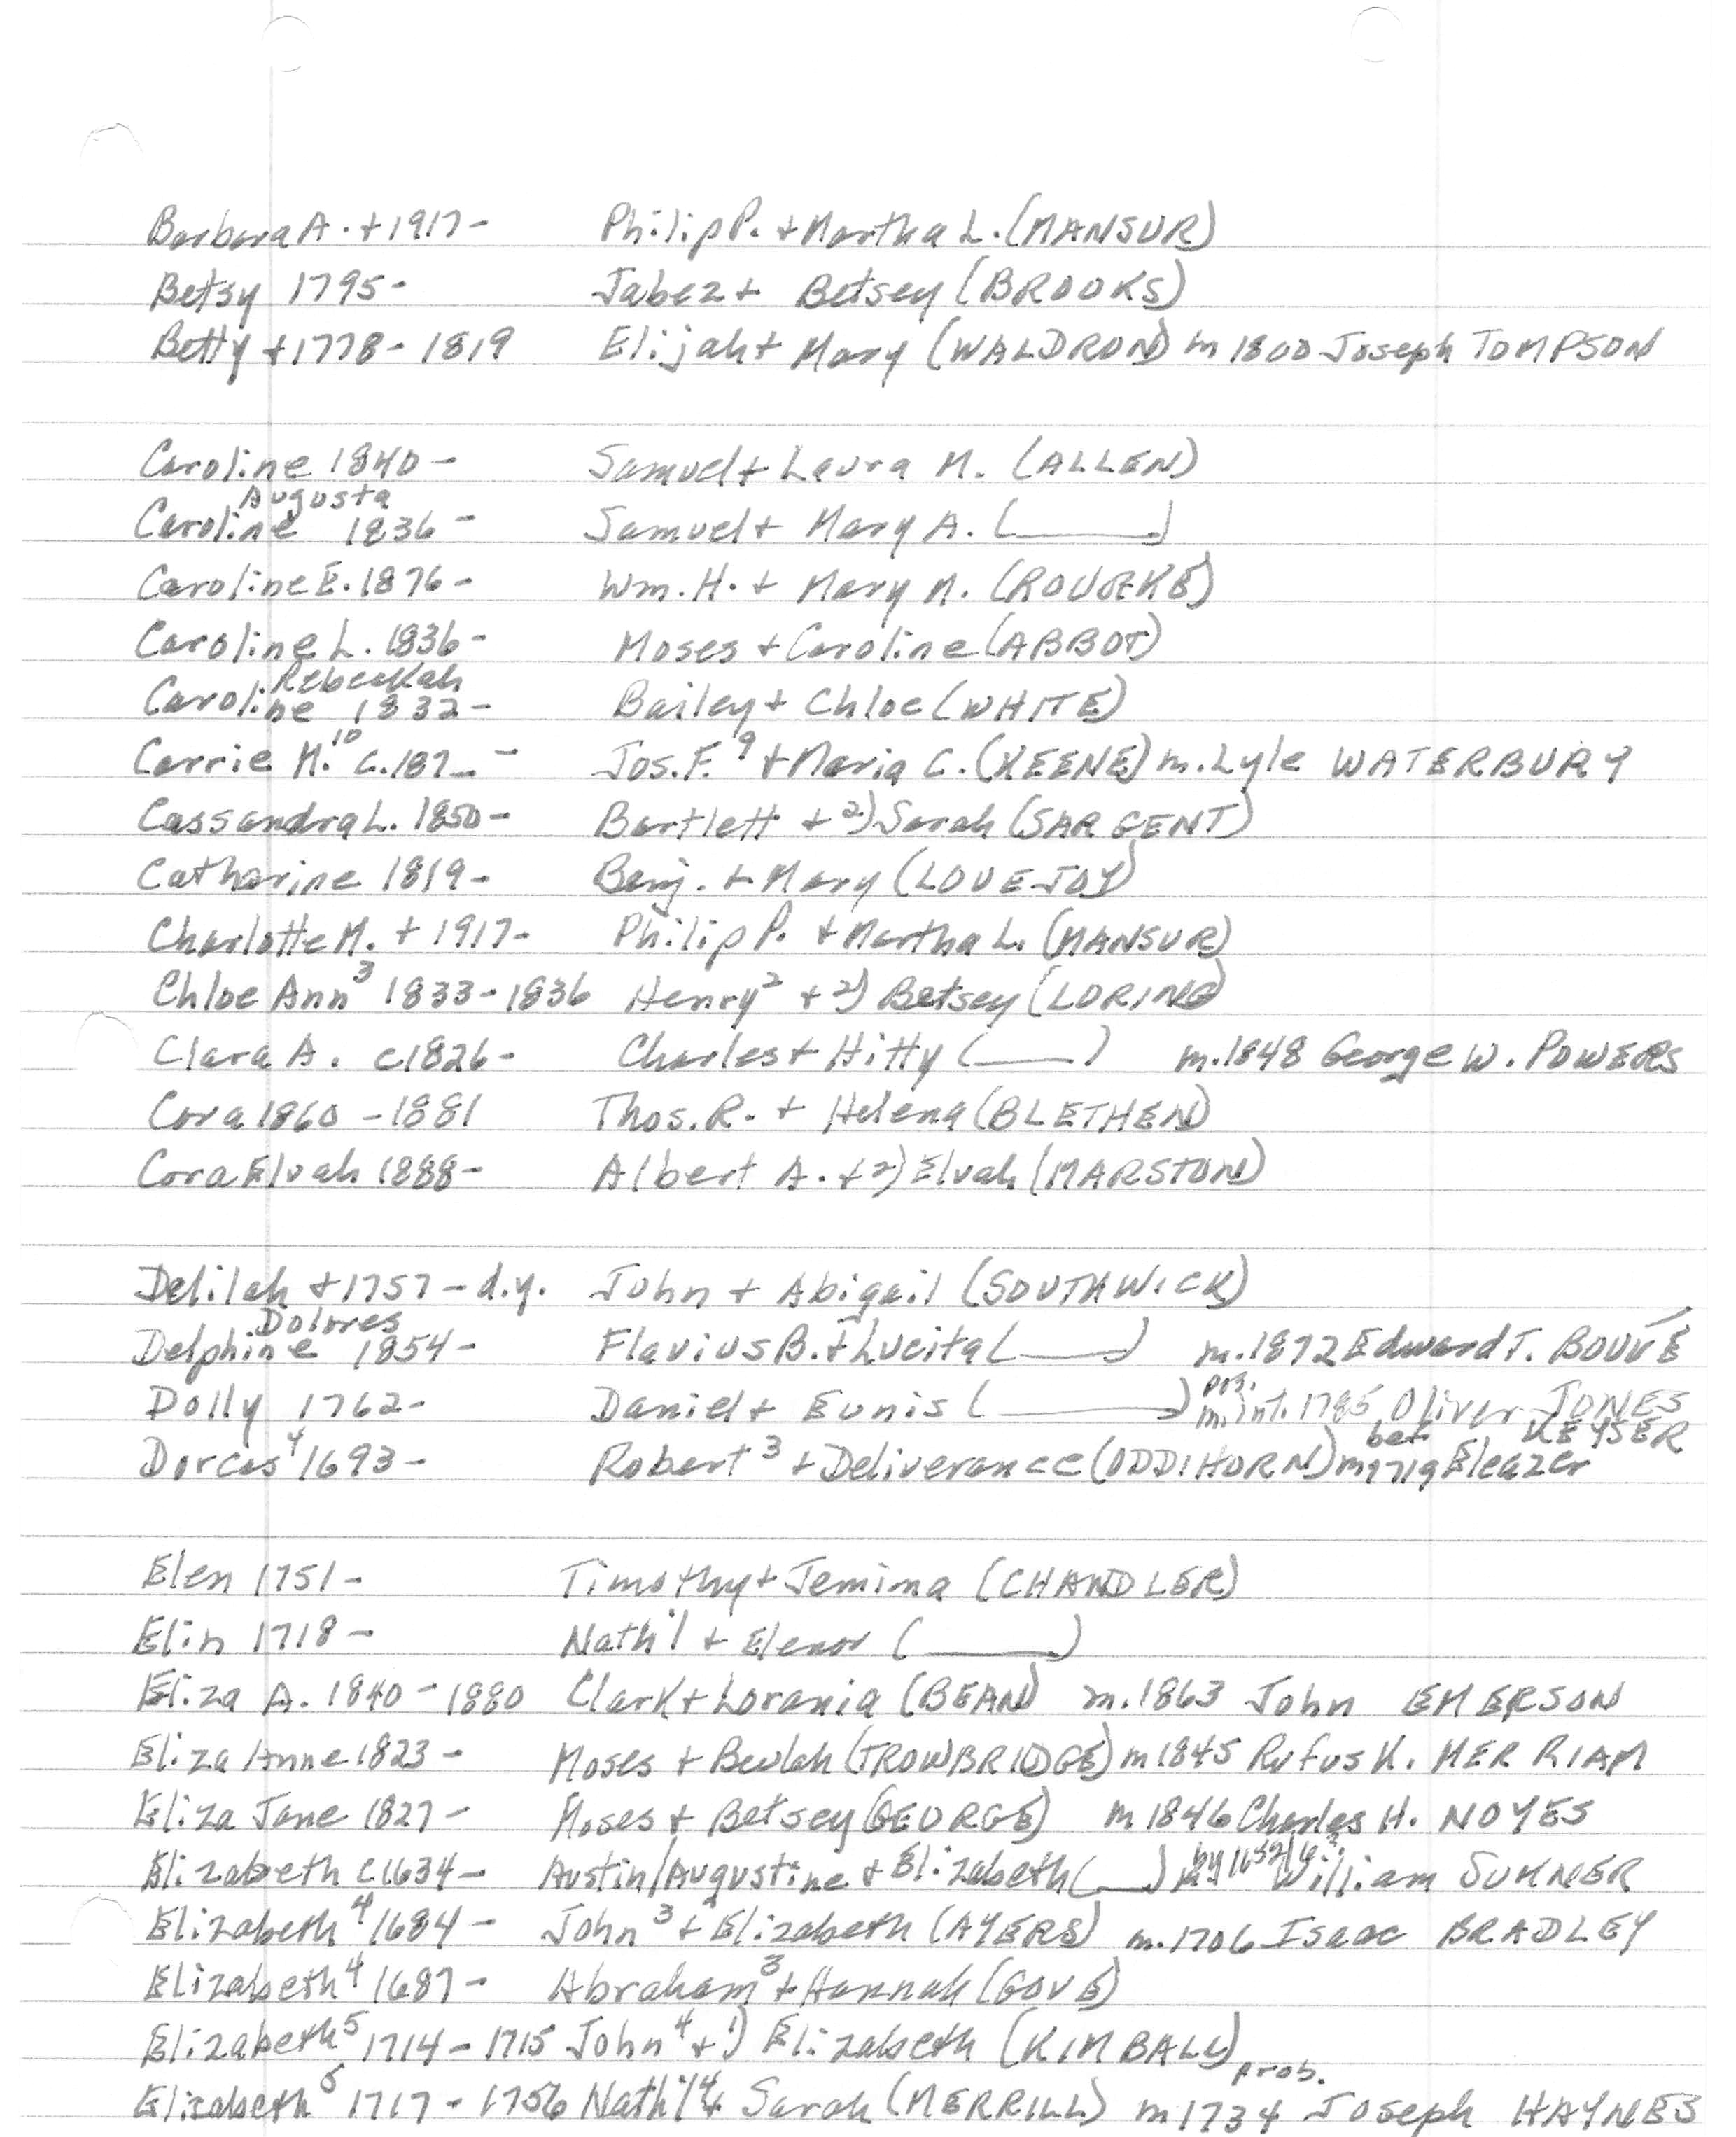 Barbara A. + 1917 - Philip P. + Martha L. (MANSUR)
Betsy 1795 - Jabez + Betsey (BROOKS)
Betty + 1778 - 1819 Elijah + Mary (WALDRON) m 1800 Joseph TOMPSON
Caroline 1840 - Samuel + Laura M. (ALLEN)
Augusta
Caroline 1836 - Samuel + Mary A. (____)
Caroline E. 1876 - Wm. H. + Mary M. (ROURKE)
Caroline L. 1836 - Moses + Caroline (ABBOT)
Rebeckah
Caroline 1832 - Bailey + Chloe (WHITE)
Carrie M.¹⁰ c.187_ - Jos. F.⁹ + Maria C. (KEENE) m. Lyle WATERBURY
Cassandra L. 1850 - Bartlett + 2) Sarah (SARGENT)
Catharine 1819 - Benj. + Mary (LOVEJOY)
Charlotte M. + 1917 - Philip P. + Martha L. (MANSUR)
Chloe Ann³ 1833 - 1836 Henry² + 2) Betsey (LORING)
Clara A. c1826 - Charles + Hitty (____) m. 1848 George W. POWERS
Cora 1860 - 1881 Thos. R. + Helena (BLETHEN)
Cora Elvah 1888 - Albert A. + 2) Elvah (MARSTON)
Delilah + 1757 - d.y. John + Abigail (SOUTHWICK)
Dolores
Delphine 1854 - Flavius B. + Lucita (____) m. 1872 Edward T. BOUVÉ
pos.
Dolly 1762 - Daniel + Eunis (____) m. int. 1785 Oliver JONES
bef. KEYSER
Dorcas⁴ 1693 - Robert³ + Deliverance (ODDIHORN) m 1719 Eleazer
Elen 1751 - Timothy + Jemima (CHANDLER)
Elin 1718 - Nath'l + Elenor (____)
Eliza A. 1840 - 1880 Clark + Lorania (BEAN) m. 1863 John EMERSON
Eliza Anne 1823 - Moses + Beulah (TROWBRIDGE) m 1845 Rufus K. MERRIAM
Eliza Jane 1827 - Moses + Betsey (GEORGE) m 1846 Charles H. NOYES
Elizabeth c1634 - Austin/Augustine + Elizabeth (__) by 1652 William SUMNER
Elizabeth⁴ 1684 - John³ + Elizabeth (AYERS) m. 1706 Isaac BRADLEY
Elizabeth⁴ 1687 - Abraham³ + Hannah (GOVE)
Elizabeth⁵ 1714 - 1715 John⁴ + 1) Elizabeth (KIMBALL)
prob.
Elizabeth⁵ 1717 - 1756 Nath'l⁴ + Sarah (MERRILL) m 1734 Joseph HAYNES